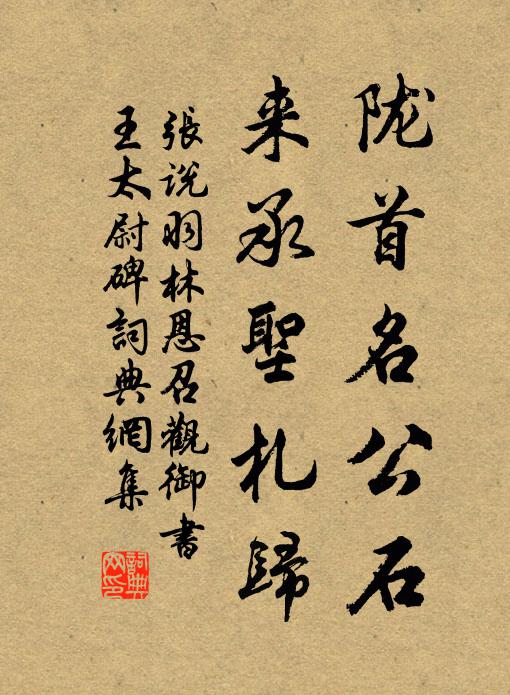 陇首名公石
来承聖札歸
張説羽林恩召觀御書
王太尉碑詞典網集
詞典
网印